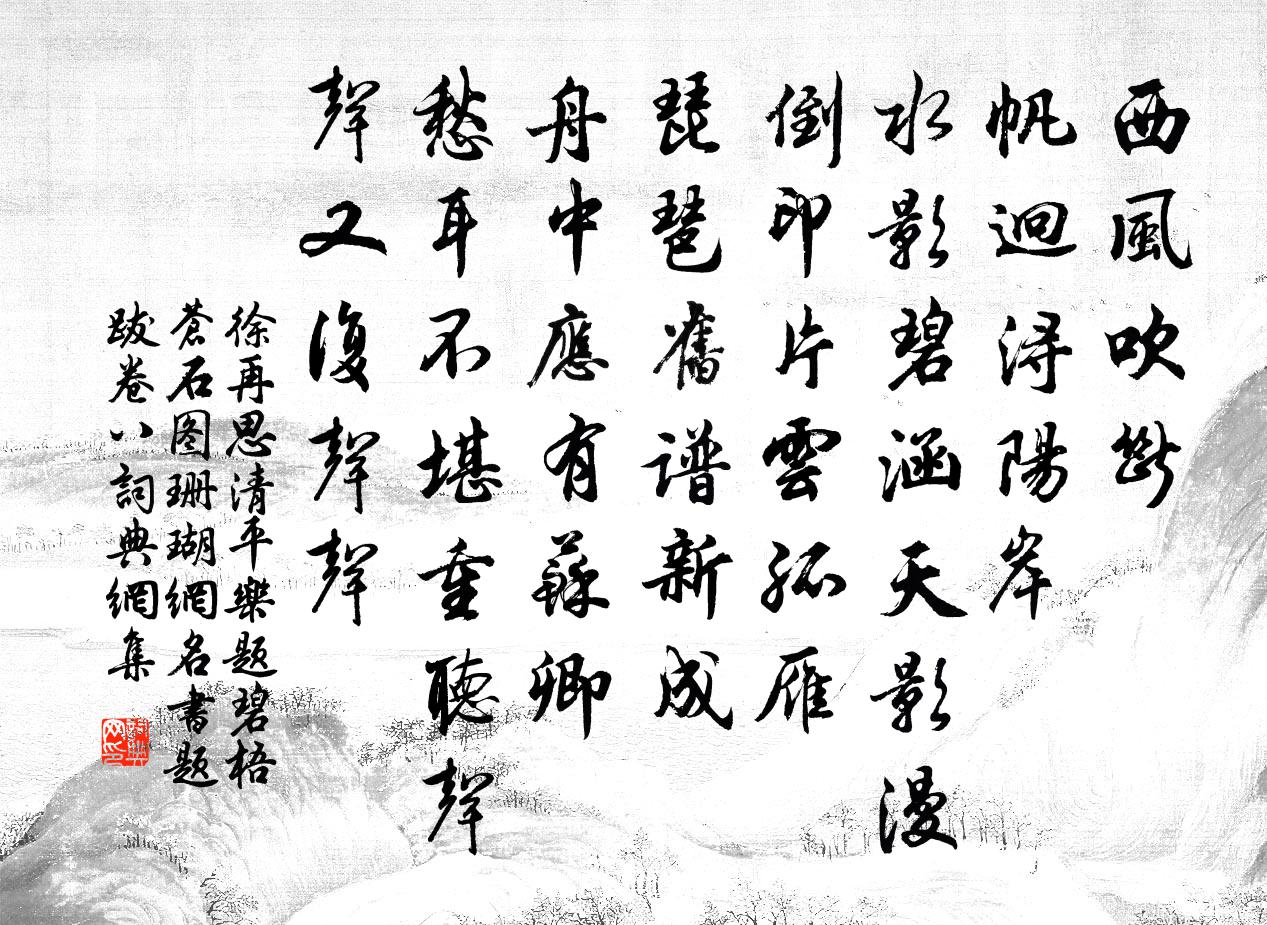 西風吹斷
帆迴浔陽岸
水影碧涵天影漫
倒印片雲孤雁
琵琶舊谱新成
舟中應有蘇卿
愁耳不堪重聽聲
聲又復聲聲
徐再思清平樂題碧梧
蒼石图珊瑚網名書題
跋卷八詞典網集